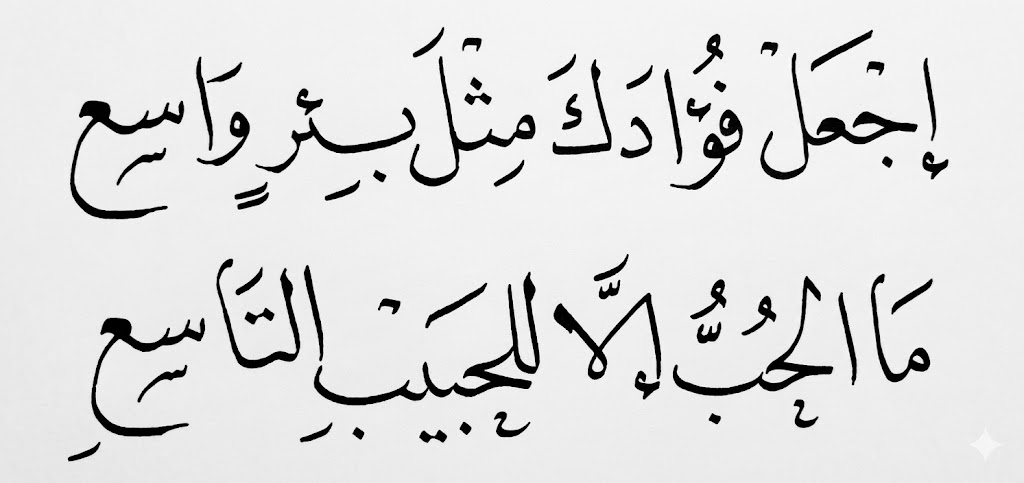 إِجْعَلْ فُؤَادَكَ مِثْلَ بِئْرٍ وَاسِعِ
مَا الحُبُّ إِلَّا للحَبيْبِ التَاسِعِ